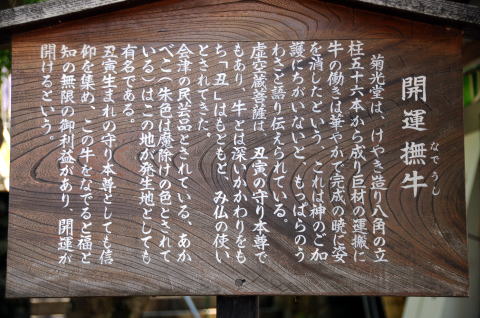 開運撫牛
なでうし
菊光堂は、けやき造り八角の立
柱五十六本から成り巨材の運搬に
牛の働きは華やかで完成の暁に姿
を消したという。これは神のご加
護にちがいないと、もっぱらのう
わさと語り伝えられている。
虚空蔵菩薩は、丑寅の守り本尊で
もあり、牛とは深いかかわりをも
ち「丑」はもともと、み仏の使い
とされてきた。
会津の民芸品とされている、あか
べこ(朱色は魔除けの色とされて
いる)はこの地が発生地としても
有名である。
丑寅生まれの守り本尊としても信
仰を集め、この牛をなでると福と
知の無限の御利益があり、開運が
開けるという。